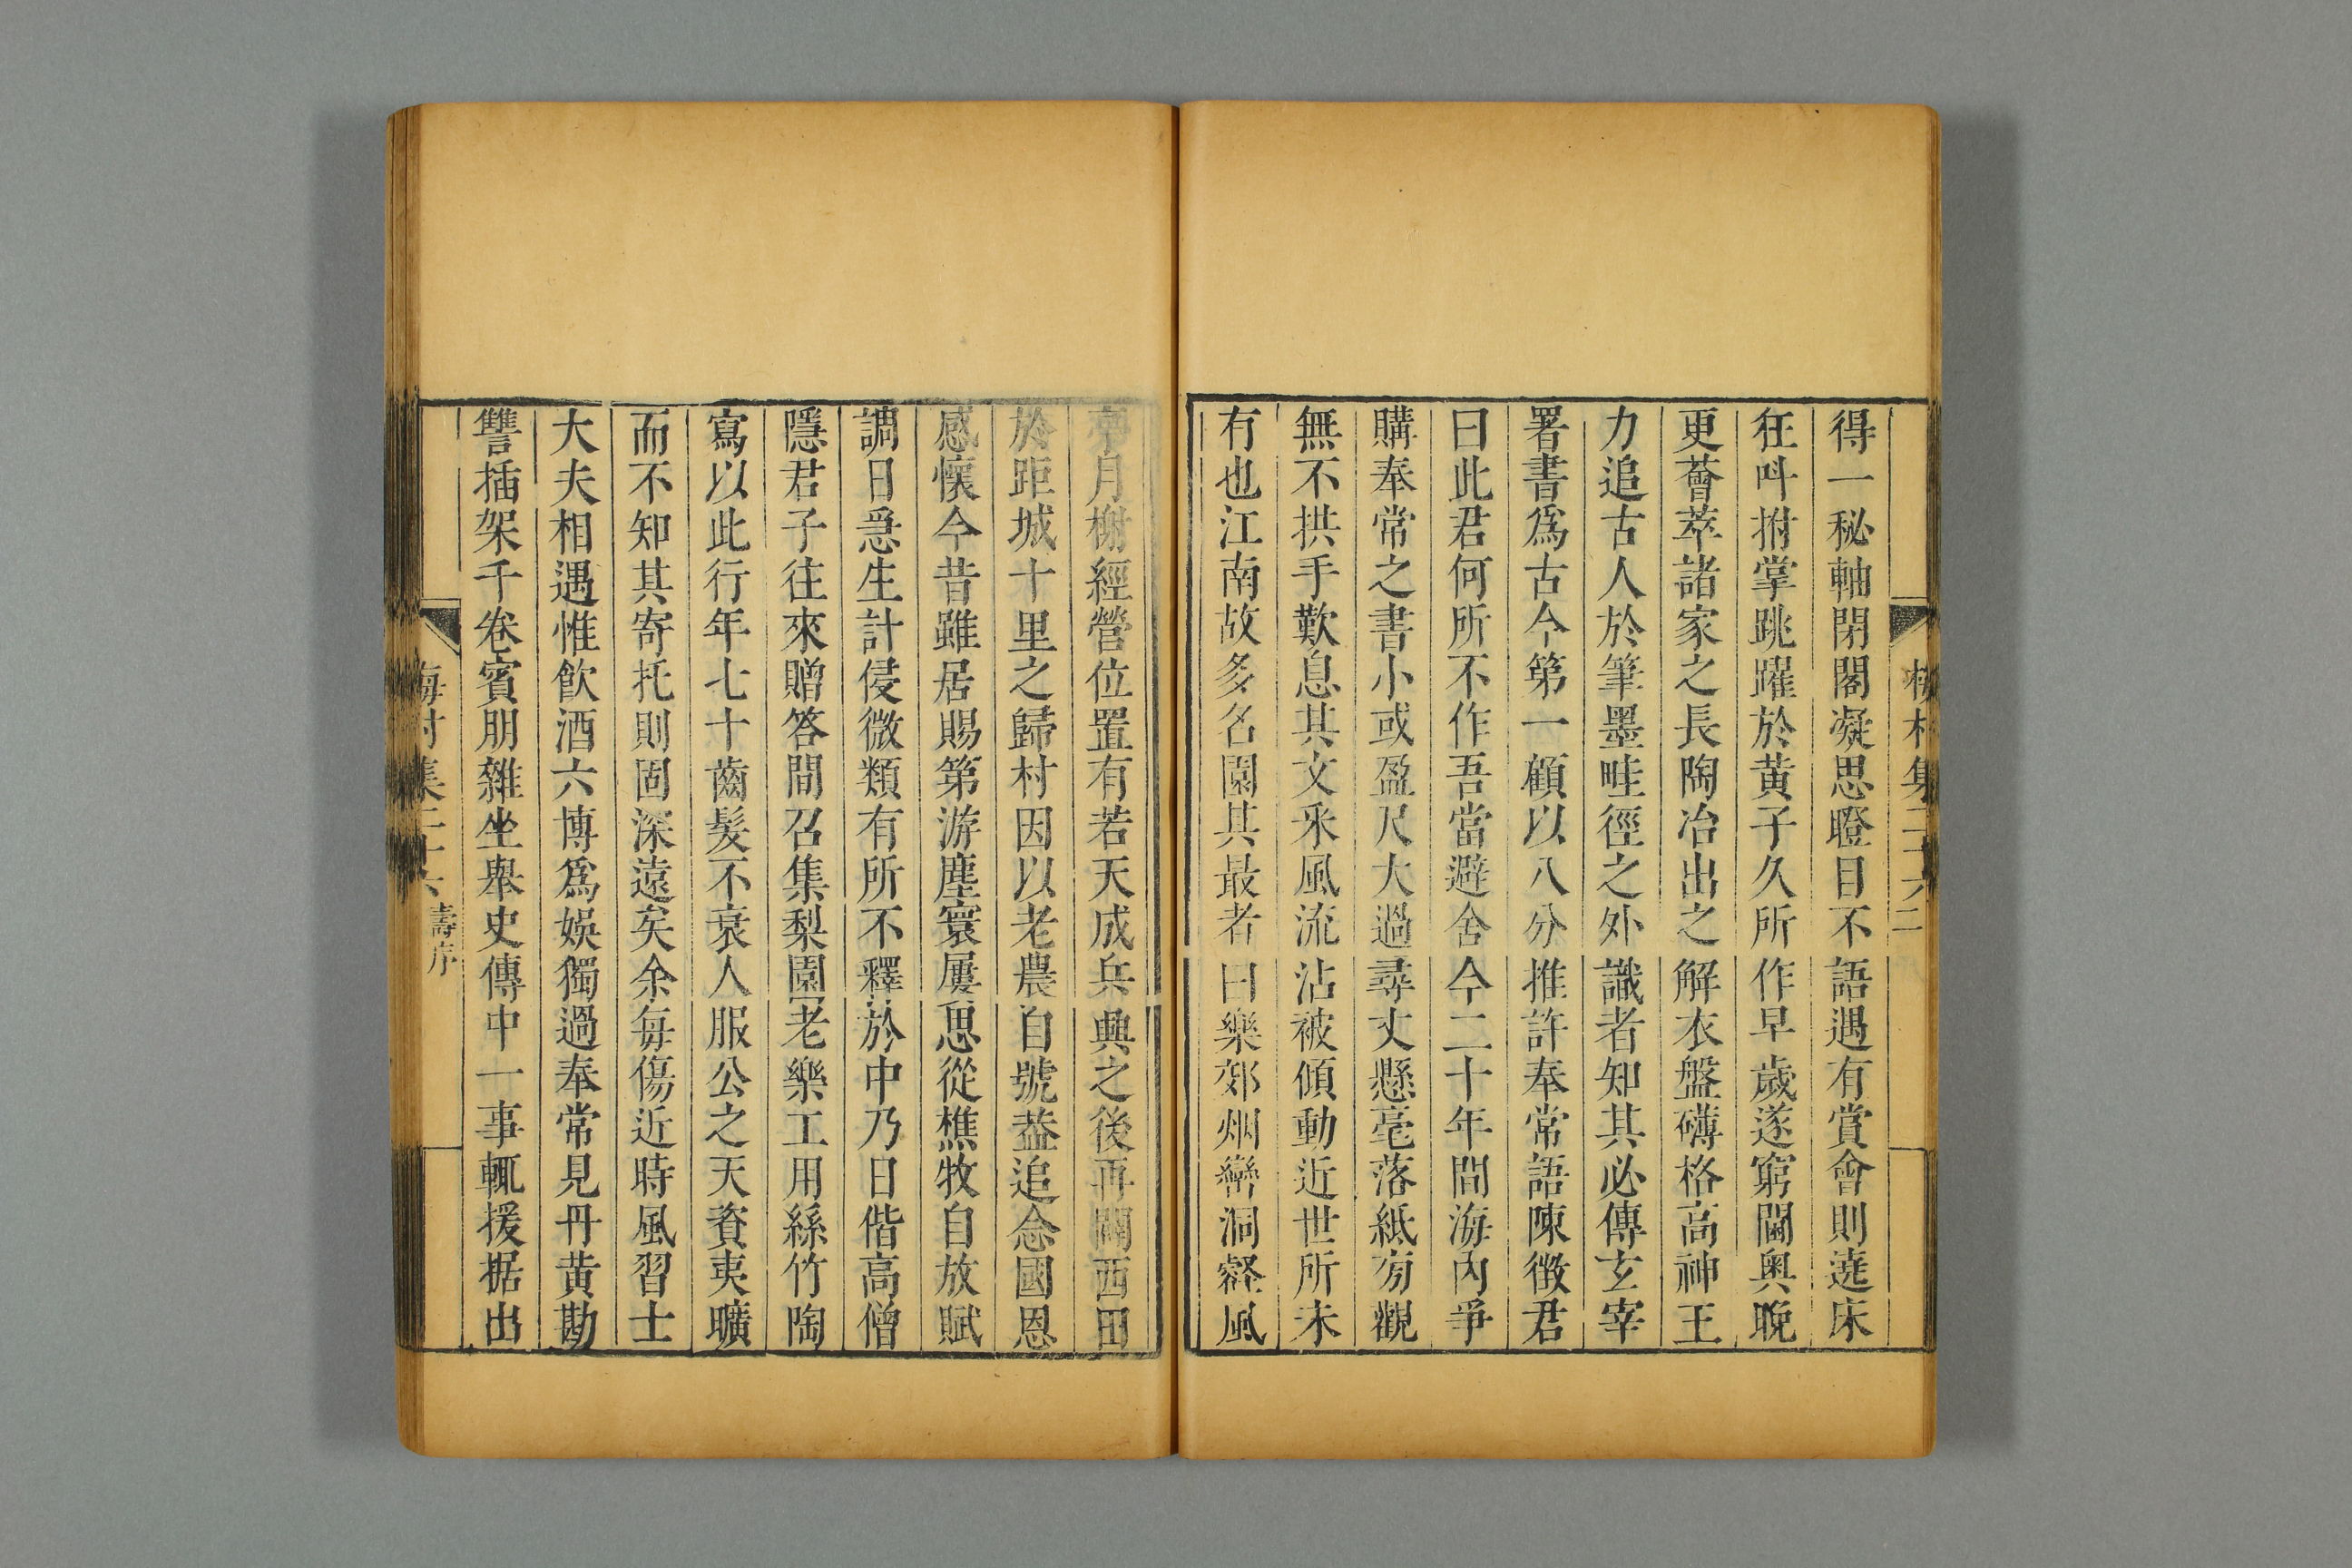 梅村集二十六 二
得一秘軸閉閣凝思瞪目不語遇有賞會則遶床
狂呌拊掌跳躍於黃子久所作早歲遂窮閫奧晚
更薈萃諸家之長陶冶出之解衣盤礴格高神王
力追古人於筆墨畦徑之外識者知其必傳玄宰
署書爲古今第一顧以八分推許奉常語陳徵君
曰此君何所不作吾當避舍今二十年間海內爭
購奉常之書小或盈尺大過尋丈懸毫落紙旁觀
無不拱手歎息其文采風流沾被傾動近世所未
有也江南故多名園其最者曰樂郊烟巒洞壑風
亭月榭經營位置有若天成兵興之後再闢西田
於距城十里之歸村因以老農自號葢追念國恩
感懷今昔雖居賜第游塵寰屢思從樵牧自放賦
調日急生計侵微類有所不釋於中乃日偕高僧
隱君子往來贈答間召集梨園老樂工用絲竹陶
寫以此行年七十齒髮不衰人服公之天資夷曠
而不知其寄托則固深遠矣余每傷近時風習士
大夫相遇惟飲酒六博爲娛獨過奉常見丹黃勘
讐插架千卷賓朋雜坐舉史傳中一事輒援据出
梅村集二十六 壽序